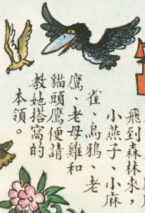 飛到森林來，
小燕子、小麻
雀、烏鴉、老
鷹、老母雞和
貓頭鷹便請
教她搭窩的
本領。